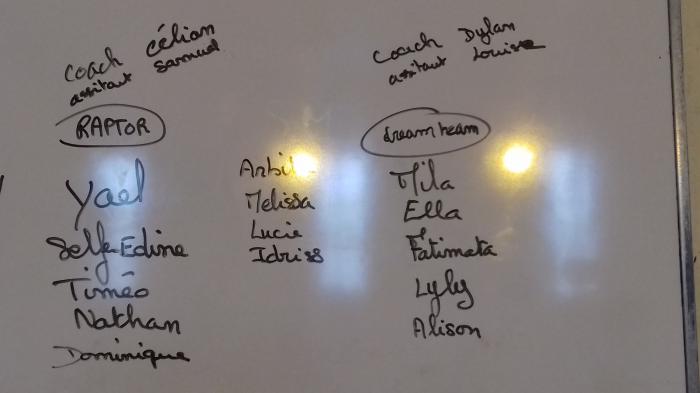 Coach Célian
assitant Samuel
RAPTOR
Yael
Self-Edine
Timéo
Nathan
Dominique
Melissa
Lucie
Idriss
Coach Dylan
assitant Louise
dream team
Mila
Ella
Fatimata
Lyly
Alison